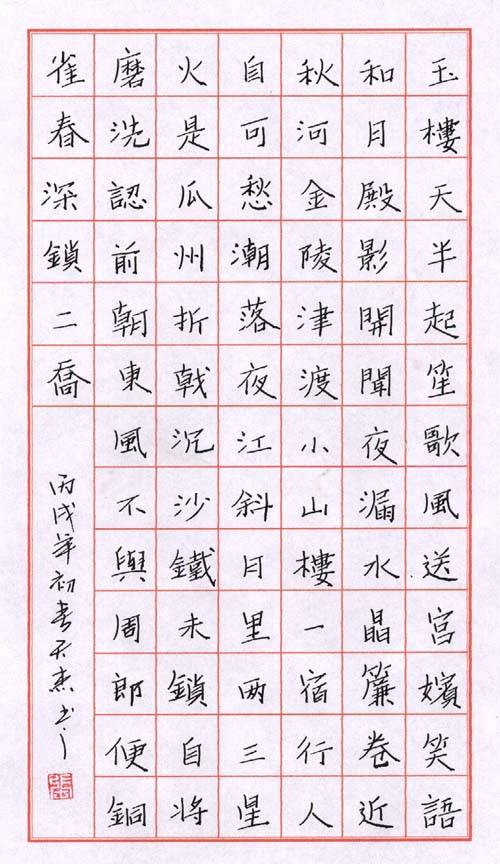 玉樓天半起笙歌風送宮嬪笑語
和月殿影開聞夜漏水晶簾卷近
秋河金陵津渡小山樓一宿行人
自可愁潮落夜江斜月里两三星
火是瓜州折戟沉沙鐵未鎖自將
磨洗認前朝東風不與周郎便銅
雀春深鎖二喬
丙戌年初春